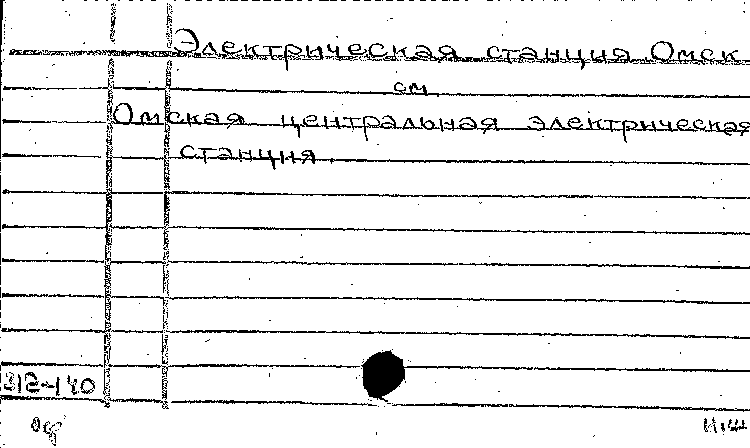 Электрическая станция Омск
см.
Омская центральная электрическая
станция.
312-140